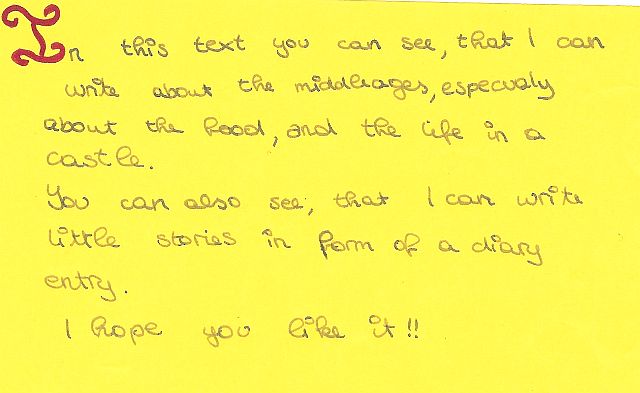 In this text you can see, that I can
write about the middleages, especualy
about the food, and the life in a
castle.
You can also see, that I can write
little stories in form of a diary
entry.
I hope you like it!!